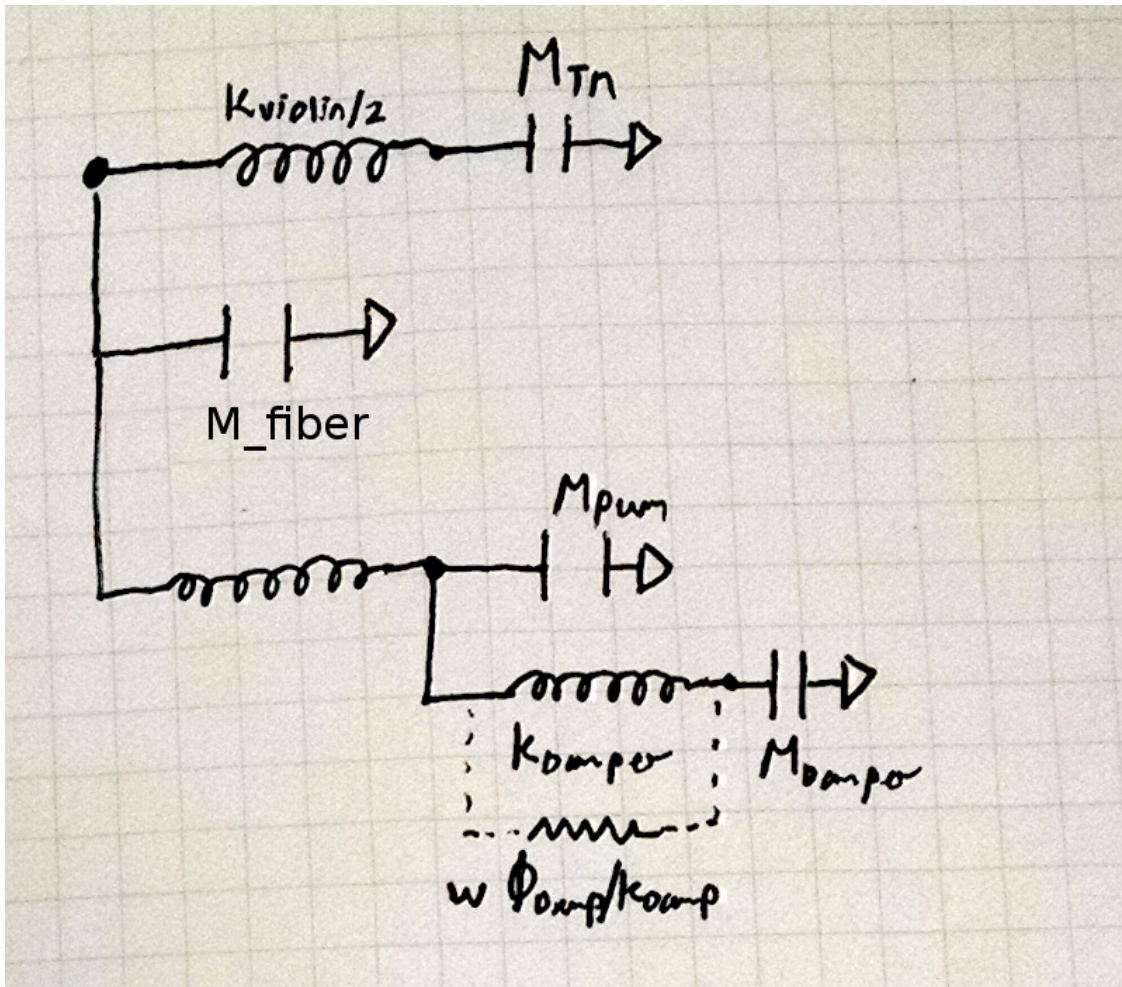 M_Tn
Kviolin/2
M_fiber
Mpum
KDamper
MDamper
w ϕDamp/KDamp